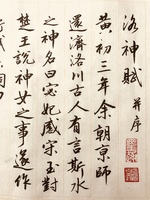 洛神賦 并序
黃初三年余朝京師
還濟洛川古人有言斯水
之神名曰宓妃感宋玉對
楚王說神女之事遂作